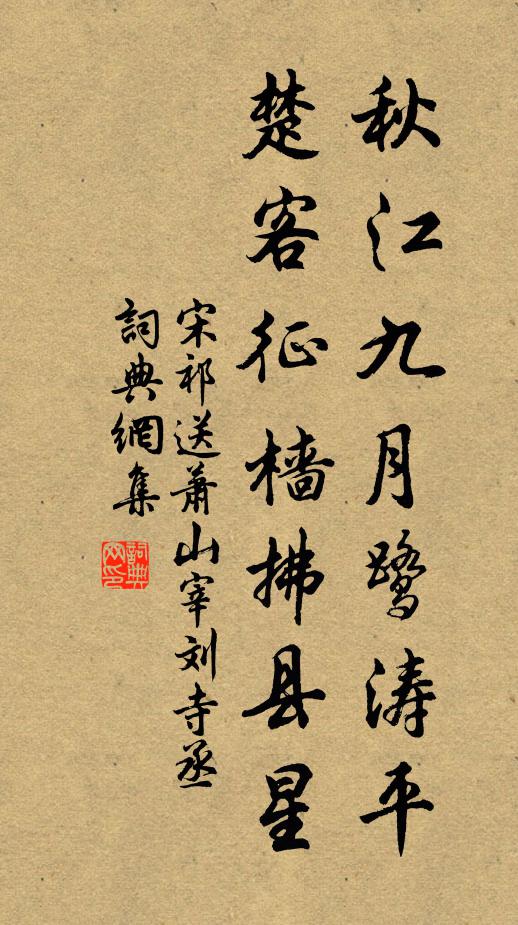 秋江九月鹭涛平
楚客征樯拂县星
宋祁送萧山宰刘寺丞
詞典網集
詞典
网印